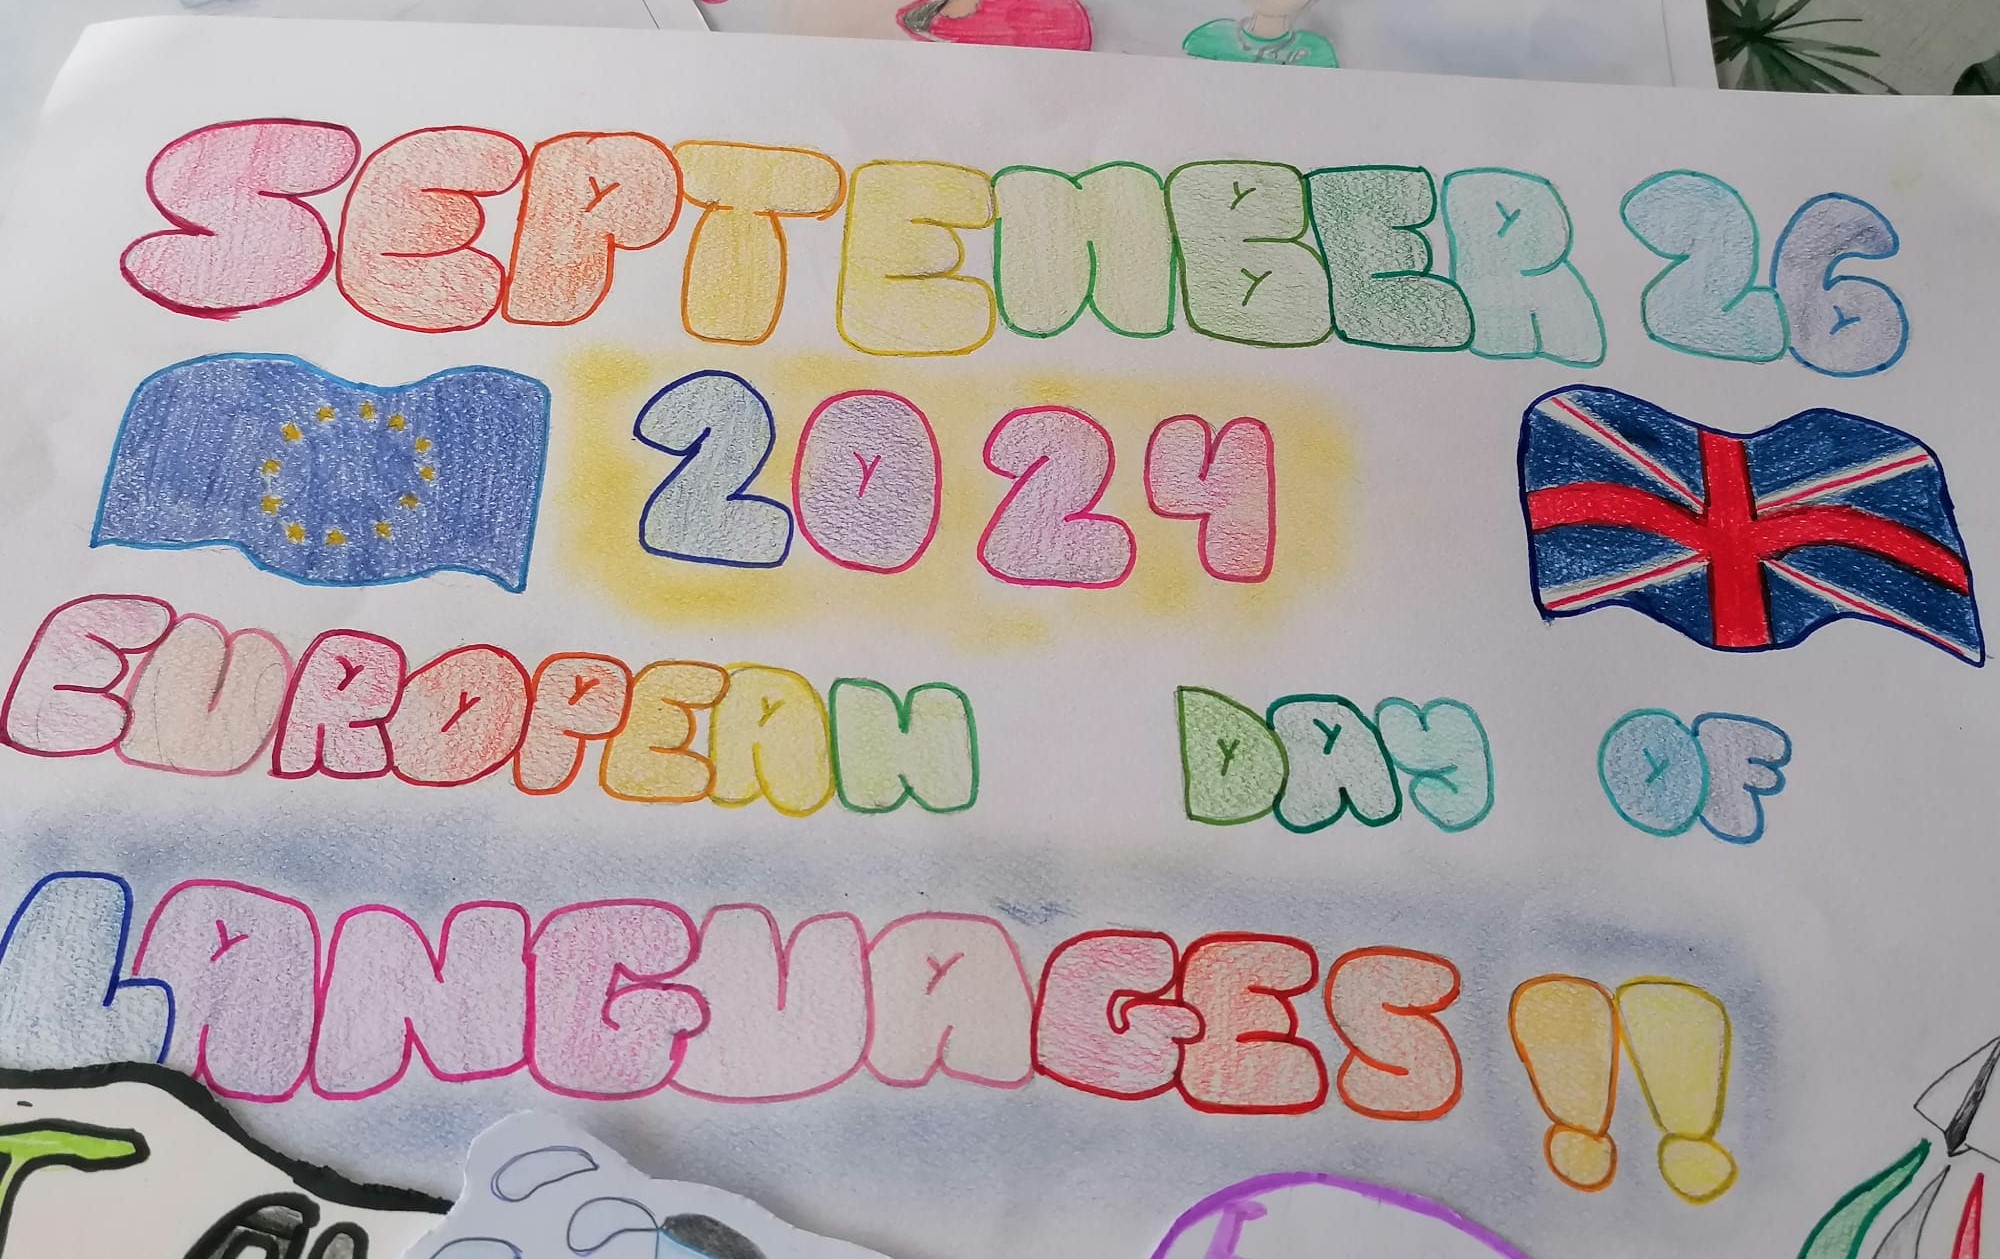 SEPTEMBER 26
2024
EUROPEAN DAY OF
LANGUAGES !!